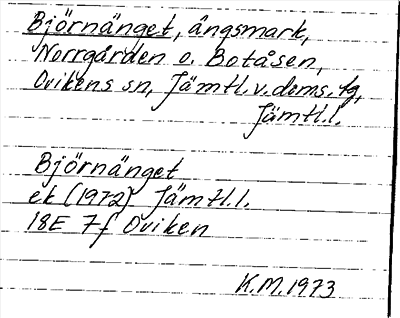 Björnänget, ängsmark,
Norrgården o. Botåsen,
Ovikens sn, Jämtl.v.doms.sg,
Jämtl.l.
Björnänget
ek (1972) Jämtl.l.
18E 7f Oviken
K.M.1973